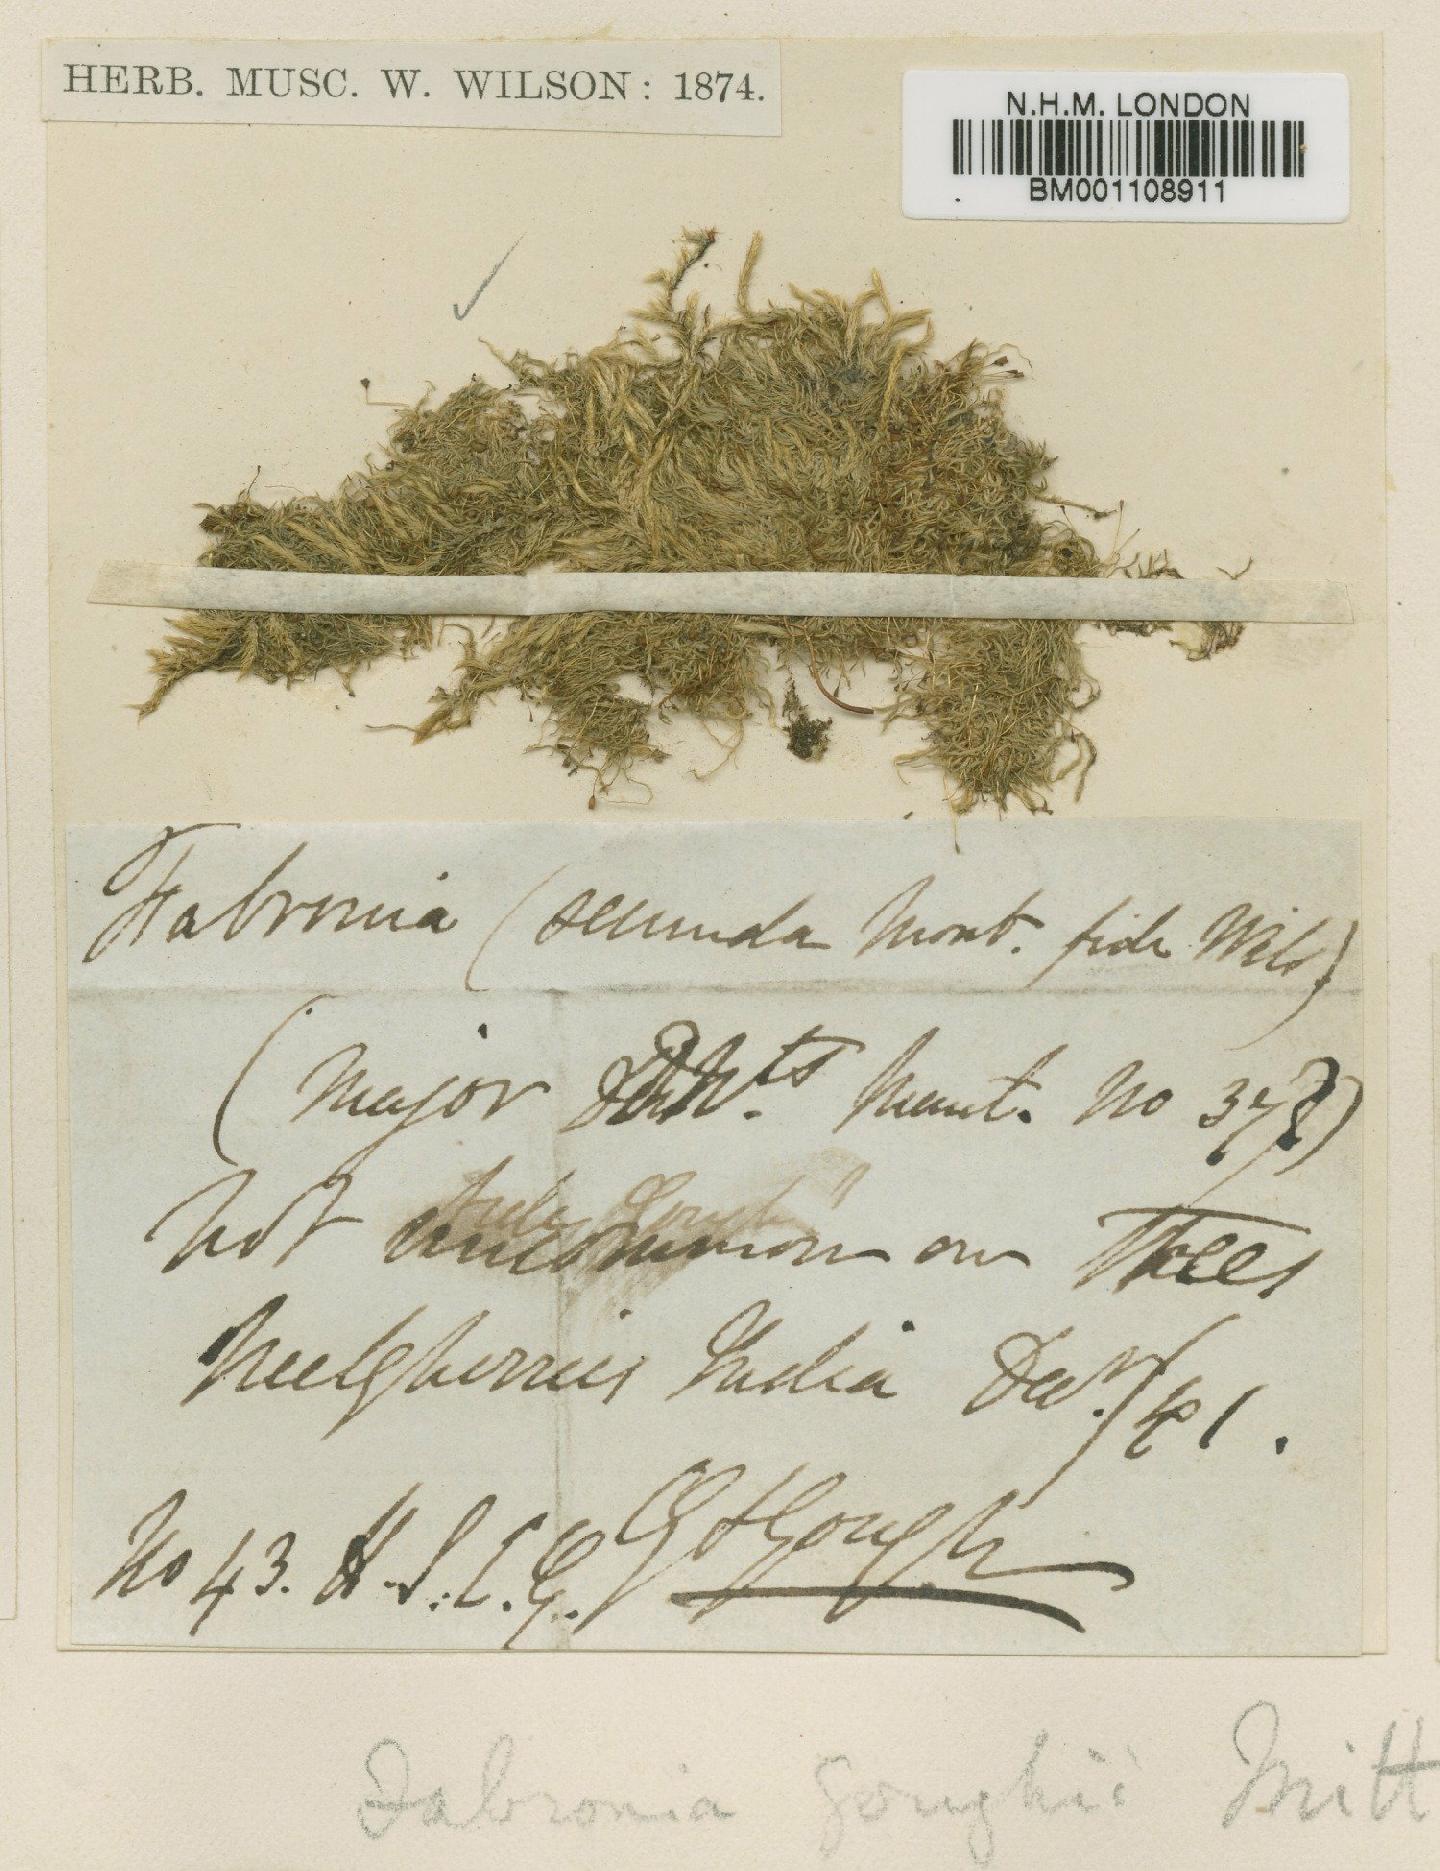 HERB. MUSC. W. WILSON: 1874.
N.H.M. LONDON
BM001108911
Fabronia (secunda Mont. fide Wils)
(Major Munt. No 378)
Not uncommon on Trees
Neelgherries India Decr/41.
No 43. H.I.C.G. G Gough
Fabronia goughii Mitt